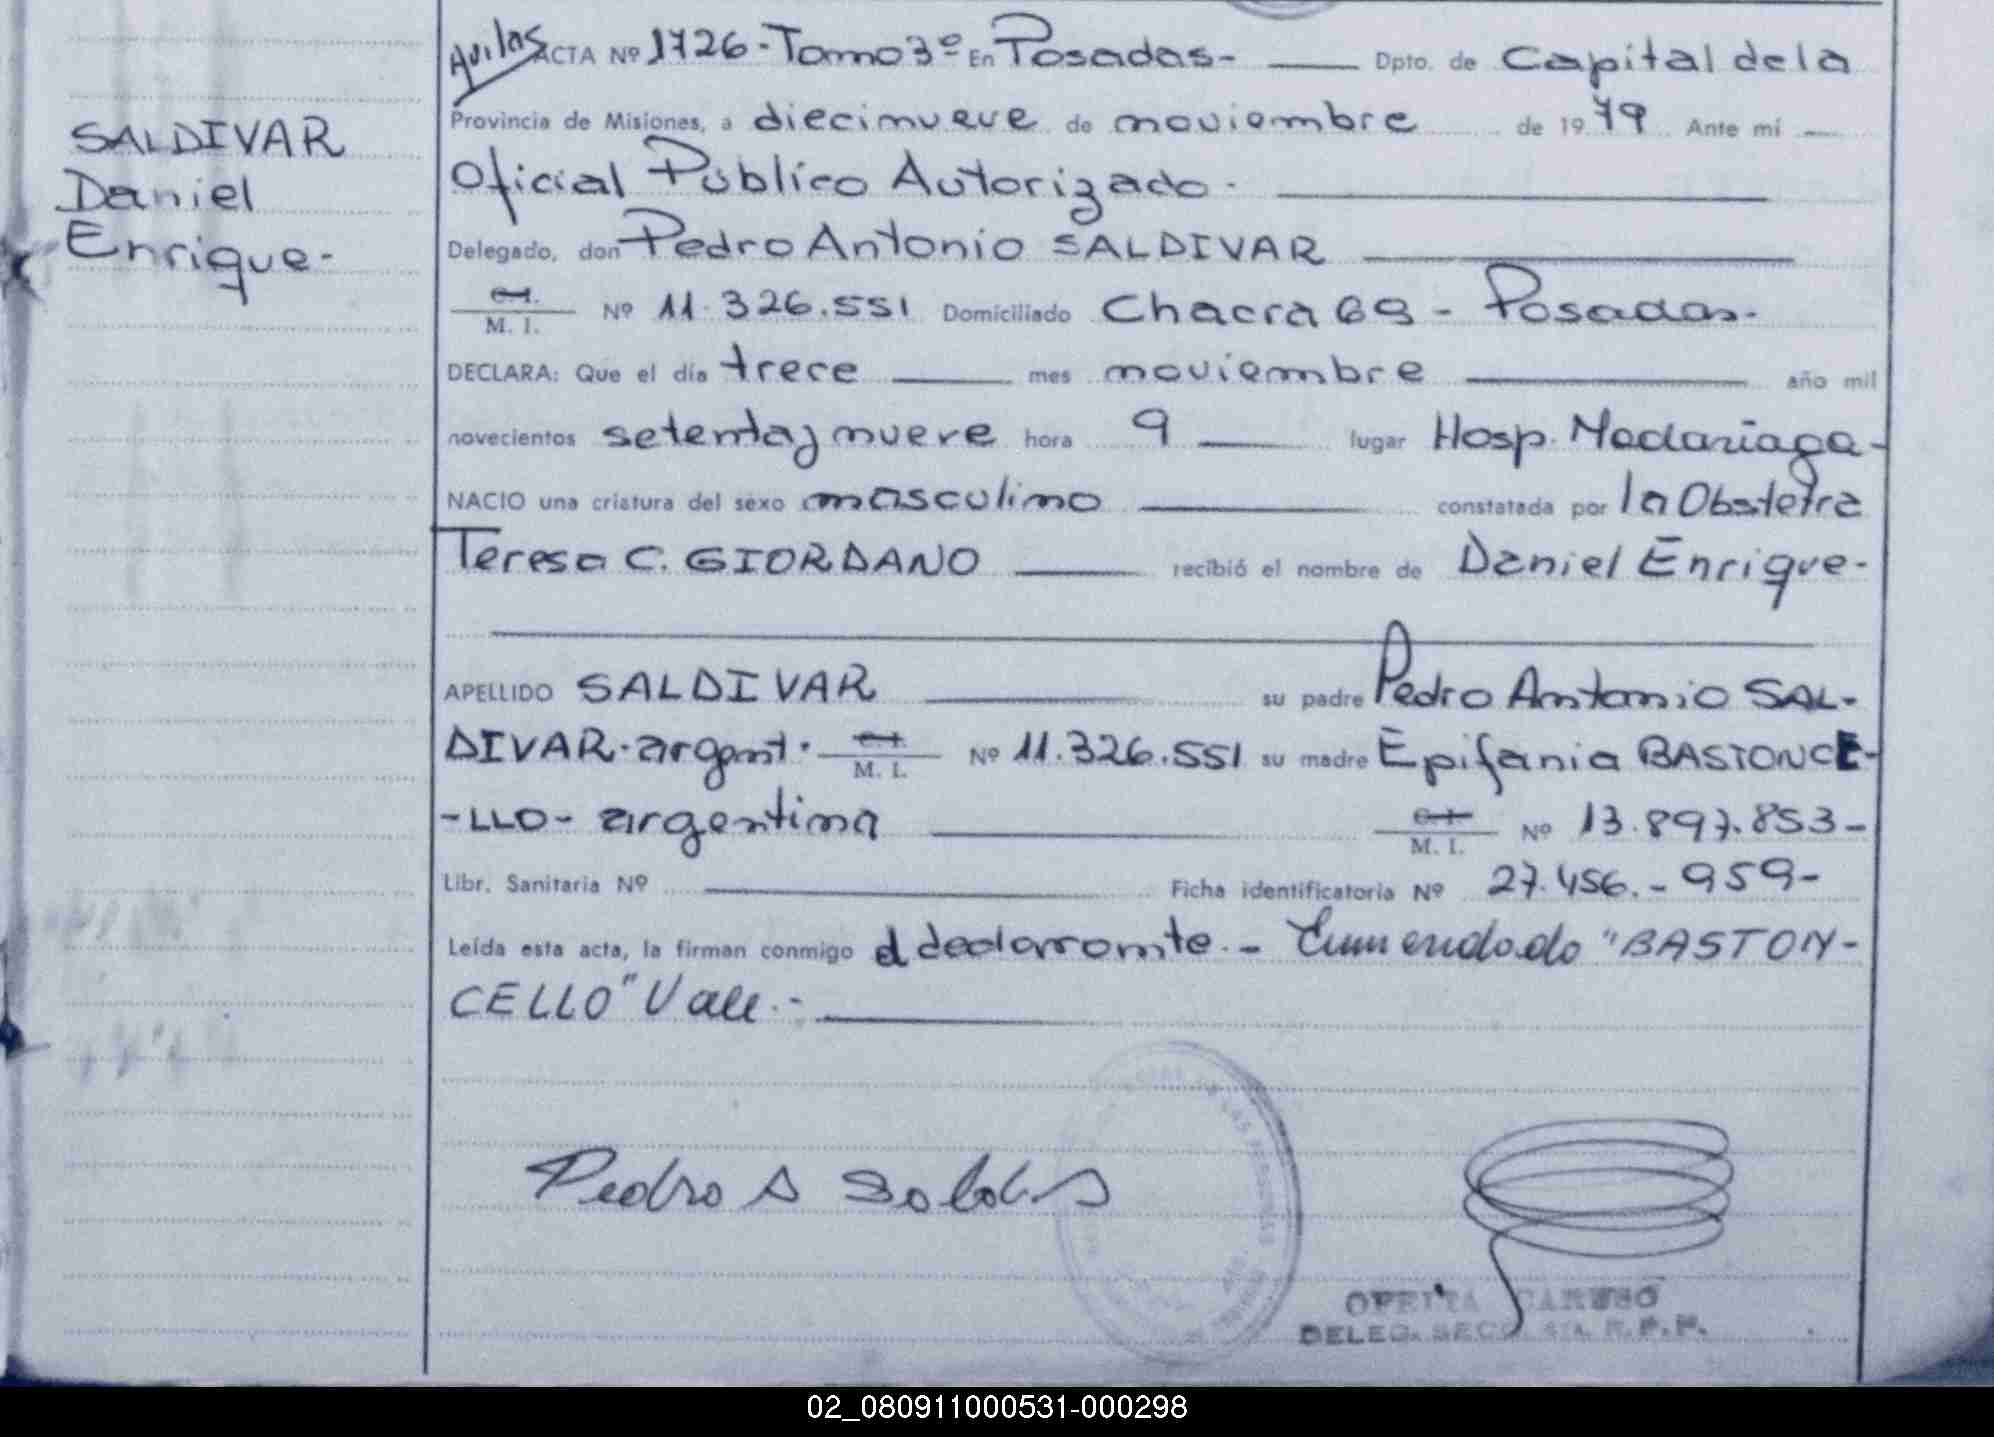 SALDIVAR
Daniel
Enrique-
Avilas ACTA Nº 1726-Tomo 3º En Posadas- Dpto. de Capital de la
Provincia de Misiones, a diecinueve de noviembre de 1979 Ante mí
Oficial Público Autorizado.
Delegado, don Pedro Antonio SALDIVAR
M. I. Nº 11.326.551 Domiciliado Chacra 69 - Posadas.
DECLARA: Que el día trece mes noviembre año mil
novecientos setenta y nueve hora 9 lugar Hosp. Madariaga-
NACIO una criatura del sexo masculino constatada por la Obstetra
Teresa C. GIORDANO recibió el nombre de Daniel Enrique-
APELLIDO SALDIVAR su padre Pedro Antonio SAL-
DIVAR-argent. M. I. Nº 11.326.551 su madre Epifania BASTONCE-
-LLO- argentina M. I. Nº 13.897.853-
Libr. Sanitaria Nº Ficha identificatoria Nº 27.456.-959-
Leída esta acta, la firman conmigo el declarante.- Enmendado "BASTON-
CELLO" Vale.-
Pedro A
CARUSO
DELEG.
02_080911000531-000298